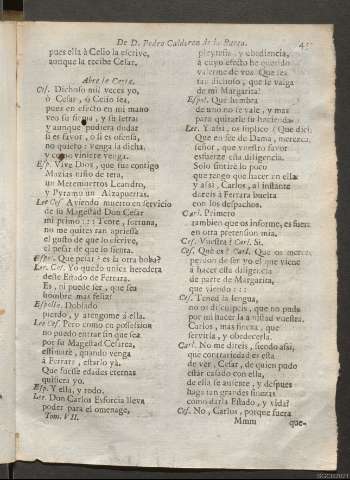 De D. Pedro Calderon de la Barca.
pues ella à Celio la escrive,
aunque la recibe Cesar.
Abre la Carta.
Ces. Dichoso mil veces yo,
ò Cesar, ò Celio sea,
pues en efecto en mi mano
veo su firma, y su letra:
y aunque pudiera dudar
si es favor, ò si es ofensa,
no quiero: venga la dicha,
y como viniere venga.
Esp. Vive Dios, que fue contigo
Mazias niño de teta,
un Metemuertos Leandro,
y Pyramo un Alzapuertas.
Lee Ces. Aviendo muerto en servicio
de su Magestad Don Cesar
mi primo ::: Tente, fortuna,
no me quites tan apriessa
el gusto de que lo escrive,
el pesar de que lo sienta.
Esp. Què pesar? es la otra boba?
Lee. Ces. Yo quedo unica heredera
deste Estado de Ferrara.
Es, ni puede ser, que sea
hombre mas feliz!
Espolin. Doblado
pierdo, y atengome à ella.
Lee Ces. Pero como en possesion
no puedo entrar sin que sea
por su Magestad Cesarea,
estimarè, quando venga
à Ferrara, estarlo yà.
Que fuesse edades eternas
quisiera yo.
Esp. Y ella, y todo.
Lee. Don Carlos Esforcia lleva
poder para el omenage,
Tom. VII.
pleytesia, y obediencia,
à cuyo efecto he querido
valerme de vos. Que res-
tan dichoso, que le valga
de mi Margarita!
Espol. Què hombra
de uno no se vale, y mas
para quitarle su hacienda!
Lee. Y assi, os suplico (Que dici
Que en fee de Dama, merezca,
señor, que vuestro favor
esfuerze esta diligencia.
Solo sintiere lo poco
que tengo que hacer en ella:
y assi, Carlos, al instante
dareis à Ferrara buelta
con los despachos.
Carl. Primero
tambien que os informe, es fuerza
en otra pretension mia.
Ces. Vuestra? Carl. Si.
Ces. Què es? Carl. Que os merez
perdon de ser yo el que viene
à hacer esta diligencia
de parte de Margarita,
que viendo :::
Ces. Tened la lengua,
no os disculpeis, que no pudo
por mi hacerla à vista vuestra.
Carlos, mas fineza, que
servirla, y obedecerla.
Carl. No me dareis, siendo assi,
que contrariedad es esta
de ver, Cesar, de quien pudo
estàr casado con ella,
de ella se ausente, y despues
haga tan grandes finezas
como darla Estado, y vida?
Ces. No, Carlos, porque fuera
Mmm
que-